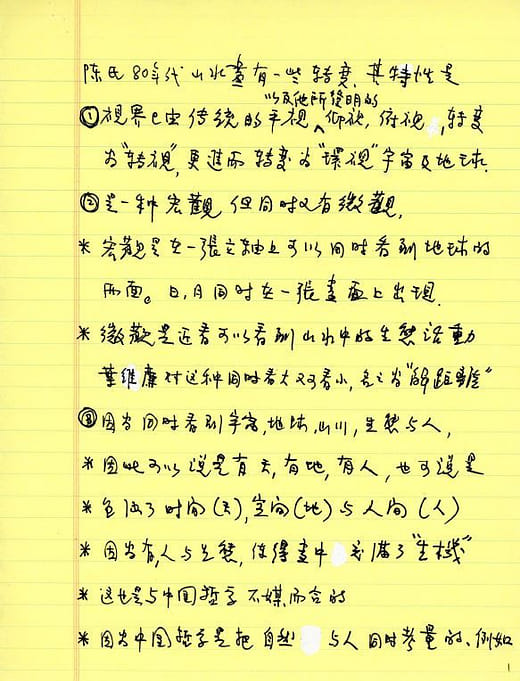 陈氏80年代山水畫有一些转变,其特性是
以及他所發明的
①視界已由传统的平視,仰視,俯視,转变
为"转視",更進而转变为"環視"宇宙及地球.
②是一种宏觀,但同时又有微觀,
* 宏觀是在一張立轴上可以同时看到地球的
兩面。日,月同时在一張畫面上出現.
* 微觀是近看可以看到山水中的生態活動
葉維廉对这种同时看大又可看小,名之为"解距離"
③因为同时看到宇宙,地球,山川,生態与人,
* 因此可以说是有天,有地,有人,也可说是
* 包涵了时间(天),空间(地)与人间(人)
* 因为有人与生態,使得畫中充滿了"生機"
* 这也是与中国哲学不媒而合的
* 因为中国哲学是把自然与人同时考量的、例如
1